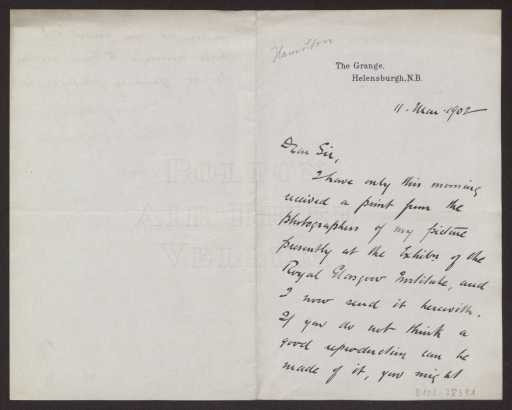 Hamilton
The Grange,
Helensburgh, N.B.
11. Mar. 1902
Dear Sir,
I have only this morning
received a print from the
photographers of my picture
presently at the Exhibn of the
Royal Glasgow Institute, and
I now send it herewith.
If you do not think a
good reproduction can be
made of it, you might